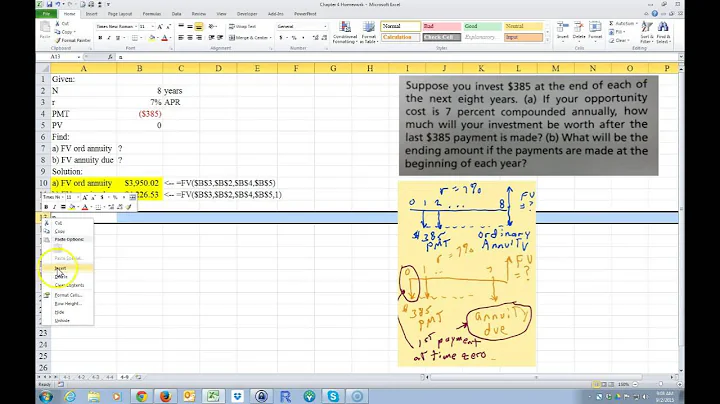 Chapter 4 Homework - Microsoft Excel
File
Home
Insert
Page Layout
Formulas
Data
Review
View
Add-Ins
PowerPivot
Conditional Formatting
Format as Table
Normal
Bad
Good
Neutral
Calculation
Check Cell
Explanatory ...
Input
Insert
Delete
Format
AutoSum
Fill
Clear
Sort & Filter
Find & Select
Clipboard
Font
Alignment
Number
Styles
Cells
Editing
A13
A
B
C
D
E
F
G
H
I
J
K
L
M
N
O
1 Given:
2 N 8 years
3 r 7% APR
4 PMT ($385)
5 PV 0
6 Find:
7 a) FV ord annuity ?
8 b) FV annuity due ?
9 Solution:
10 a) FV ord annuity $3,950.02 <-- =FV($B$3,$B$2,$B$4,$B$5)
226.53 <-- =FV($B$3,$B$2,$B$4,$B$5,1)
Cut
Copy
Paste Options:
Paste Special...
Insert
Delete
Clear Contents
Format Cells...
Row Height...
Hide
Unhide
23
24
25
26
Suppose you invest $385 at the end of each of
the next eight years. (a) If your opportunity
cost is 7 percent compounded annually, how
much will your investment be worth after the
last $385 payment is made? (b) What will be the
ending amount if the payments are made at the
beginning of each year?
r = 7%
FV
= ?
0 1 2 ... 8
$385
PMT
ordinary
Annuity
r = 7%
FV
= ?
0 1 ... 7
$385
PMT
annuity
due
1st payment
at time zero
Ready
130%
9:05 AM
9/2/2015